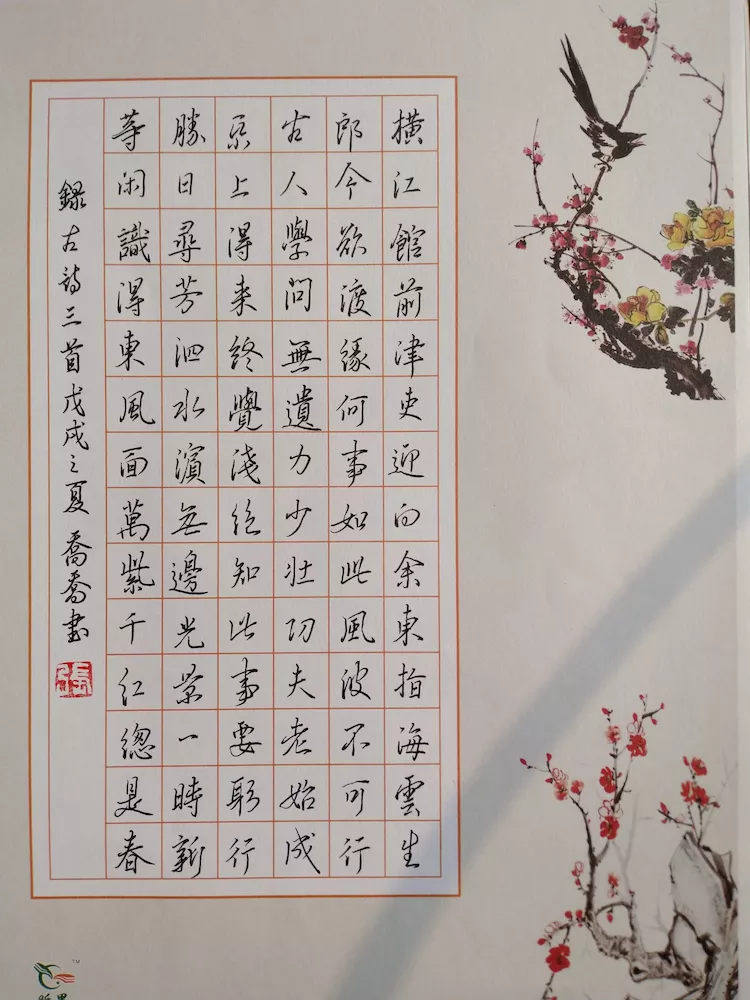 橫江館前津吏迎向余東指海雲生
郎今欲渡緣何事如此風波不可行
古人學問無遺力少壯功夫老始成
帋上得來終覺淺絕知此事要躬行
勝日尋芳泗水濱無邊光景一時新
等閑識得東風面萬紫千紅總是春
錄古詩三首戊戌之夏 喬喬書
張
TM